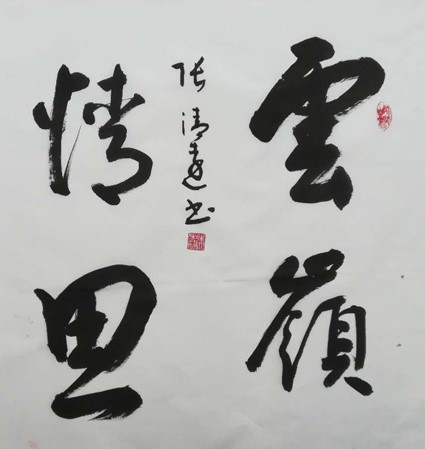 雲嶺
情思
张清莲书